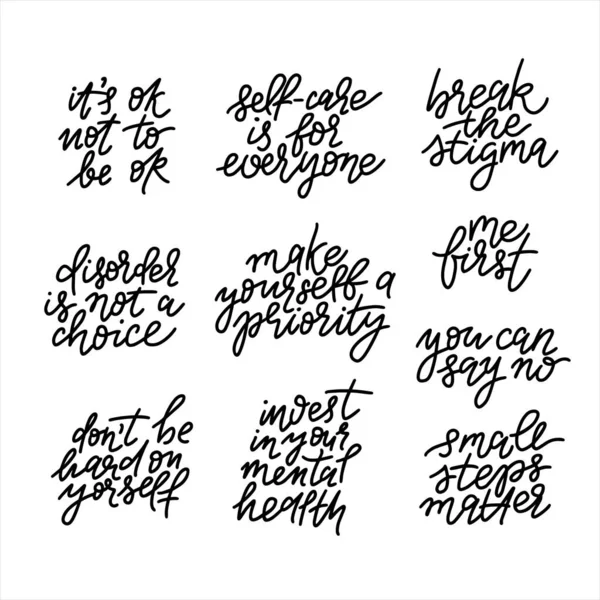 it's ok
not to
be ok
self-care
is for
everyone
break
the
stigma
disorder
is not a
choice
make
yourself a
priority
me
first
you can
say no
don't be
hard on
yorself
invest
in your
mental
health
small
steps
matter